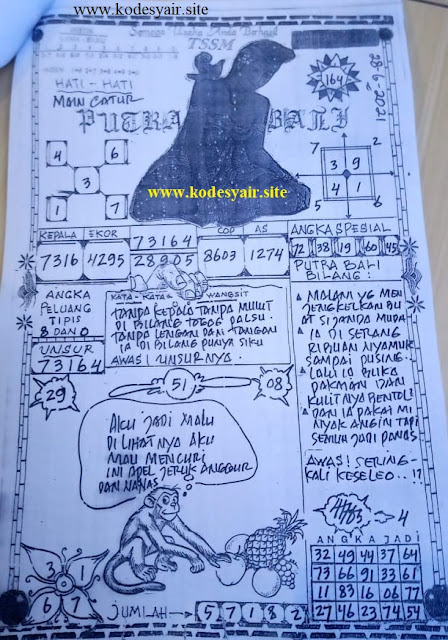 www.kodesyair.site
Semoga Usaha Anda Berhasil
TSSM
28-6-2021
HATI-HATI
MAIN CATUR
164
PUTRA BALI
4 6
3
1 7
7 2
3 9
4 1
6
www.kodesyair.site
KEPALA EKOR
7316 4295
73164
28905
COP AS
8603 1274
ANGKA SPESIAL
72 38 19 60 45
PUTRA BALI
BILANG:
ANGKA
PELUANG
TIPIS
8 DAN 0
UNSUR
73164
KATA-KATA WANGSIT
TANPA KEPALA TANPA MULUT
DI BILANG TOGOG PALSU.
TANPA LENGAN DAN TANGAN
IA DI BILANG PUNYA SIKU
AWAS! UNSURNYA.
MALAM YG MEN
JENGKELKAN BU
AT SI JANDA MUDA
IA DI SERANG
RIBUAN NYAMUK
SAMPAI PUSING..
LALU IA BUKA
PAKMAN DAN
KULITNYA BENTOL2
DAN IA PAKAI MI
NYAK ANGIN TAPI
SEMUH JADI PANAS
AWAS! SERING-
KALI KESELEO..!?
29
51
08
AKU JADI MALU
DI LIHATNYA AKU
MAU MENCURI
INI APEL JERUK ANGGUR
DAN NANAS
4
ANGKA JADI
32 49 44 37 64
73 66 91 33 61
11 83 16 06 77
27 46 23 74 54
3 1
6 7
JUMLAH → 5 7 1 8 2